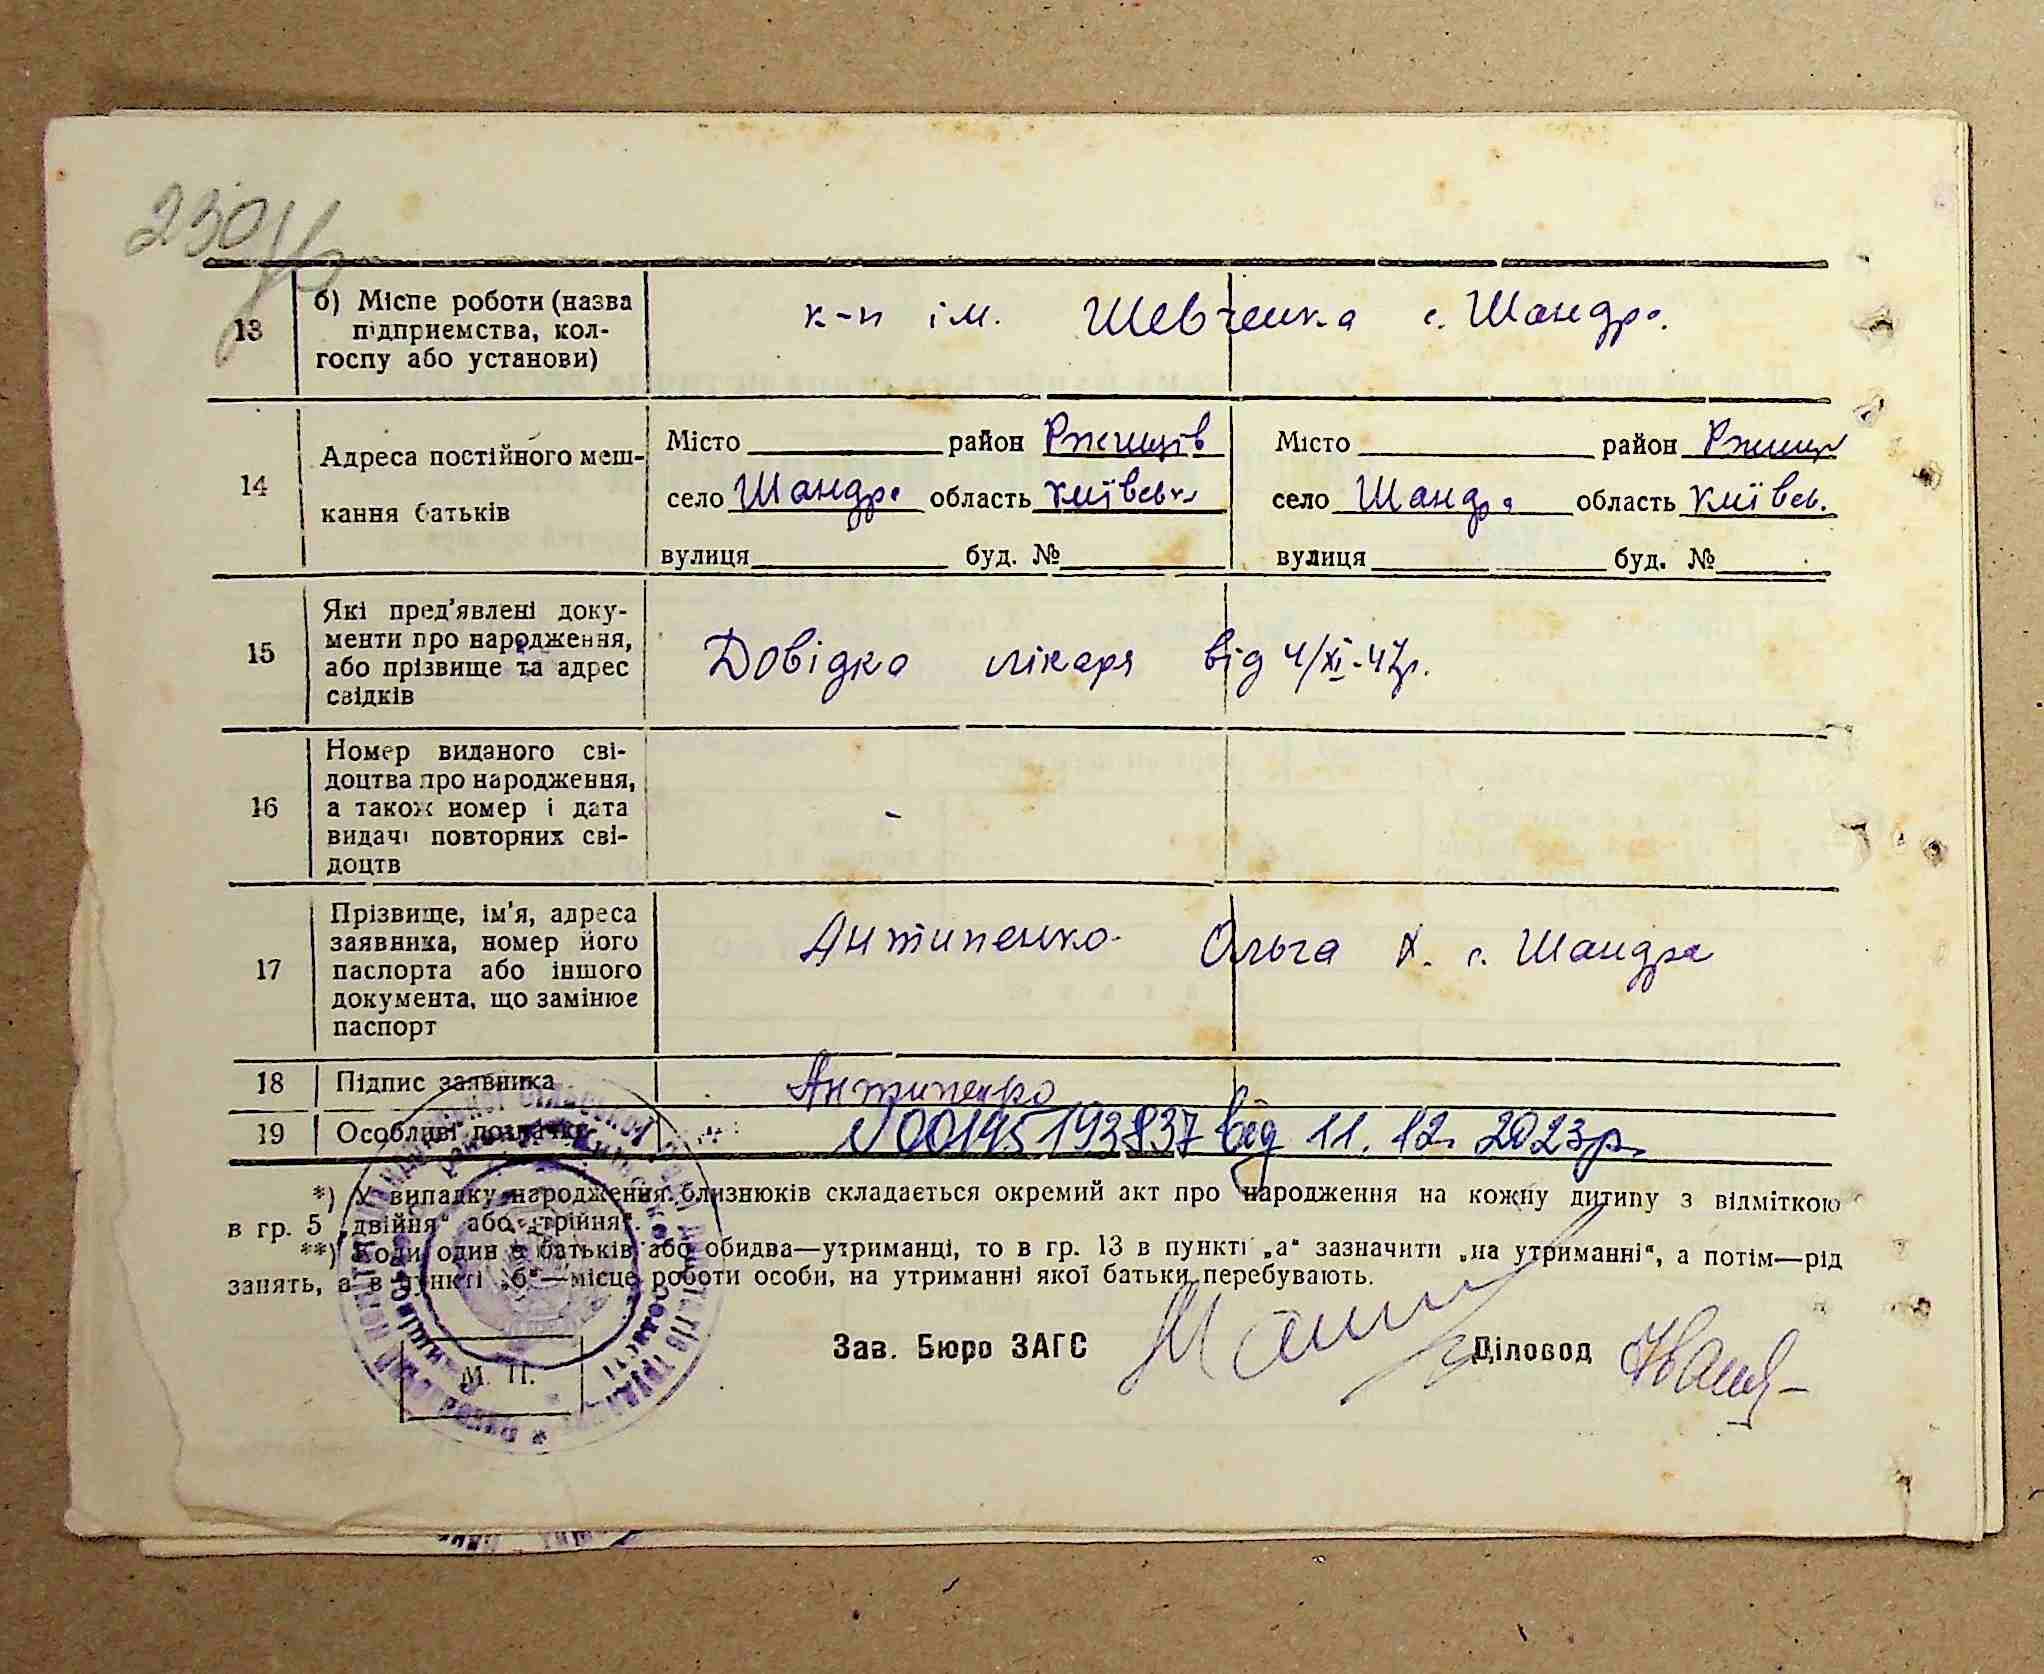 230
13
б) Місце роботи (назва
підприємства, кол-
госпу або установи)
к-п ім. Шевченка с. Шандра.
14
Адреса постійного меш-
кання батьків
Місто район Ржищів
село Шандра область Київськ
вулиця буд. №
Місто район Ржищ
село Шандра область Київсь.
вулиця буд. №
15
Які пред'явлені доку-
менти про народження,
або прізвище та адрес
свідків
Довідка лікаря від 4/XI-47р.
16
Номер виданого сві-
доцтва про народження,
а також номер і дата
видачі повторних сві-
доцтв
-
17
Прізвище, ім'я, адреса
заявника, номер його
паспорта або іншого
документа, що замінює
паспорт
Антипенко Ольга Х. с. Шандра
18 Підпис заявника
Антипенко
19 Особливі позначки
N00145193837 від 11.12.2023р.
*) У випадку народження близнюків складається окремий акт про народження на кожну дитину з відміткою
в гр. 5 „двійня“ або „трійня“.
**) Коли один з батьків або обидва—утриманці, то в гр. 13 в пункті „а“ зазначити „на утриманні“, а потім—рід
занять, а в пункті „б“—місце роботи особи, на утриманні якої батьки перебувають.
Зав. Бюро ЗАГС
Діловод
М. П.